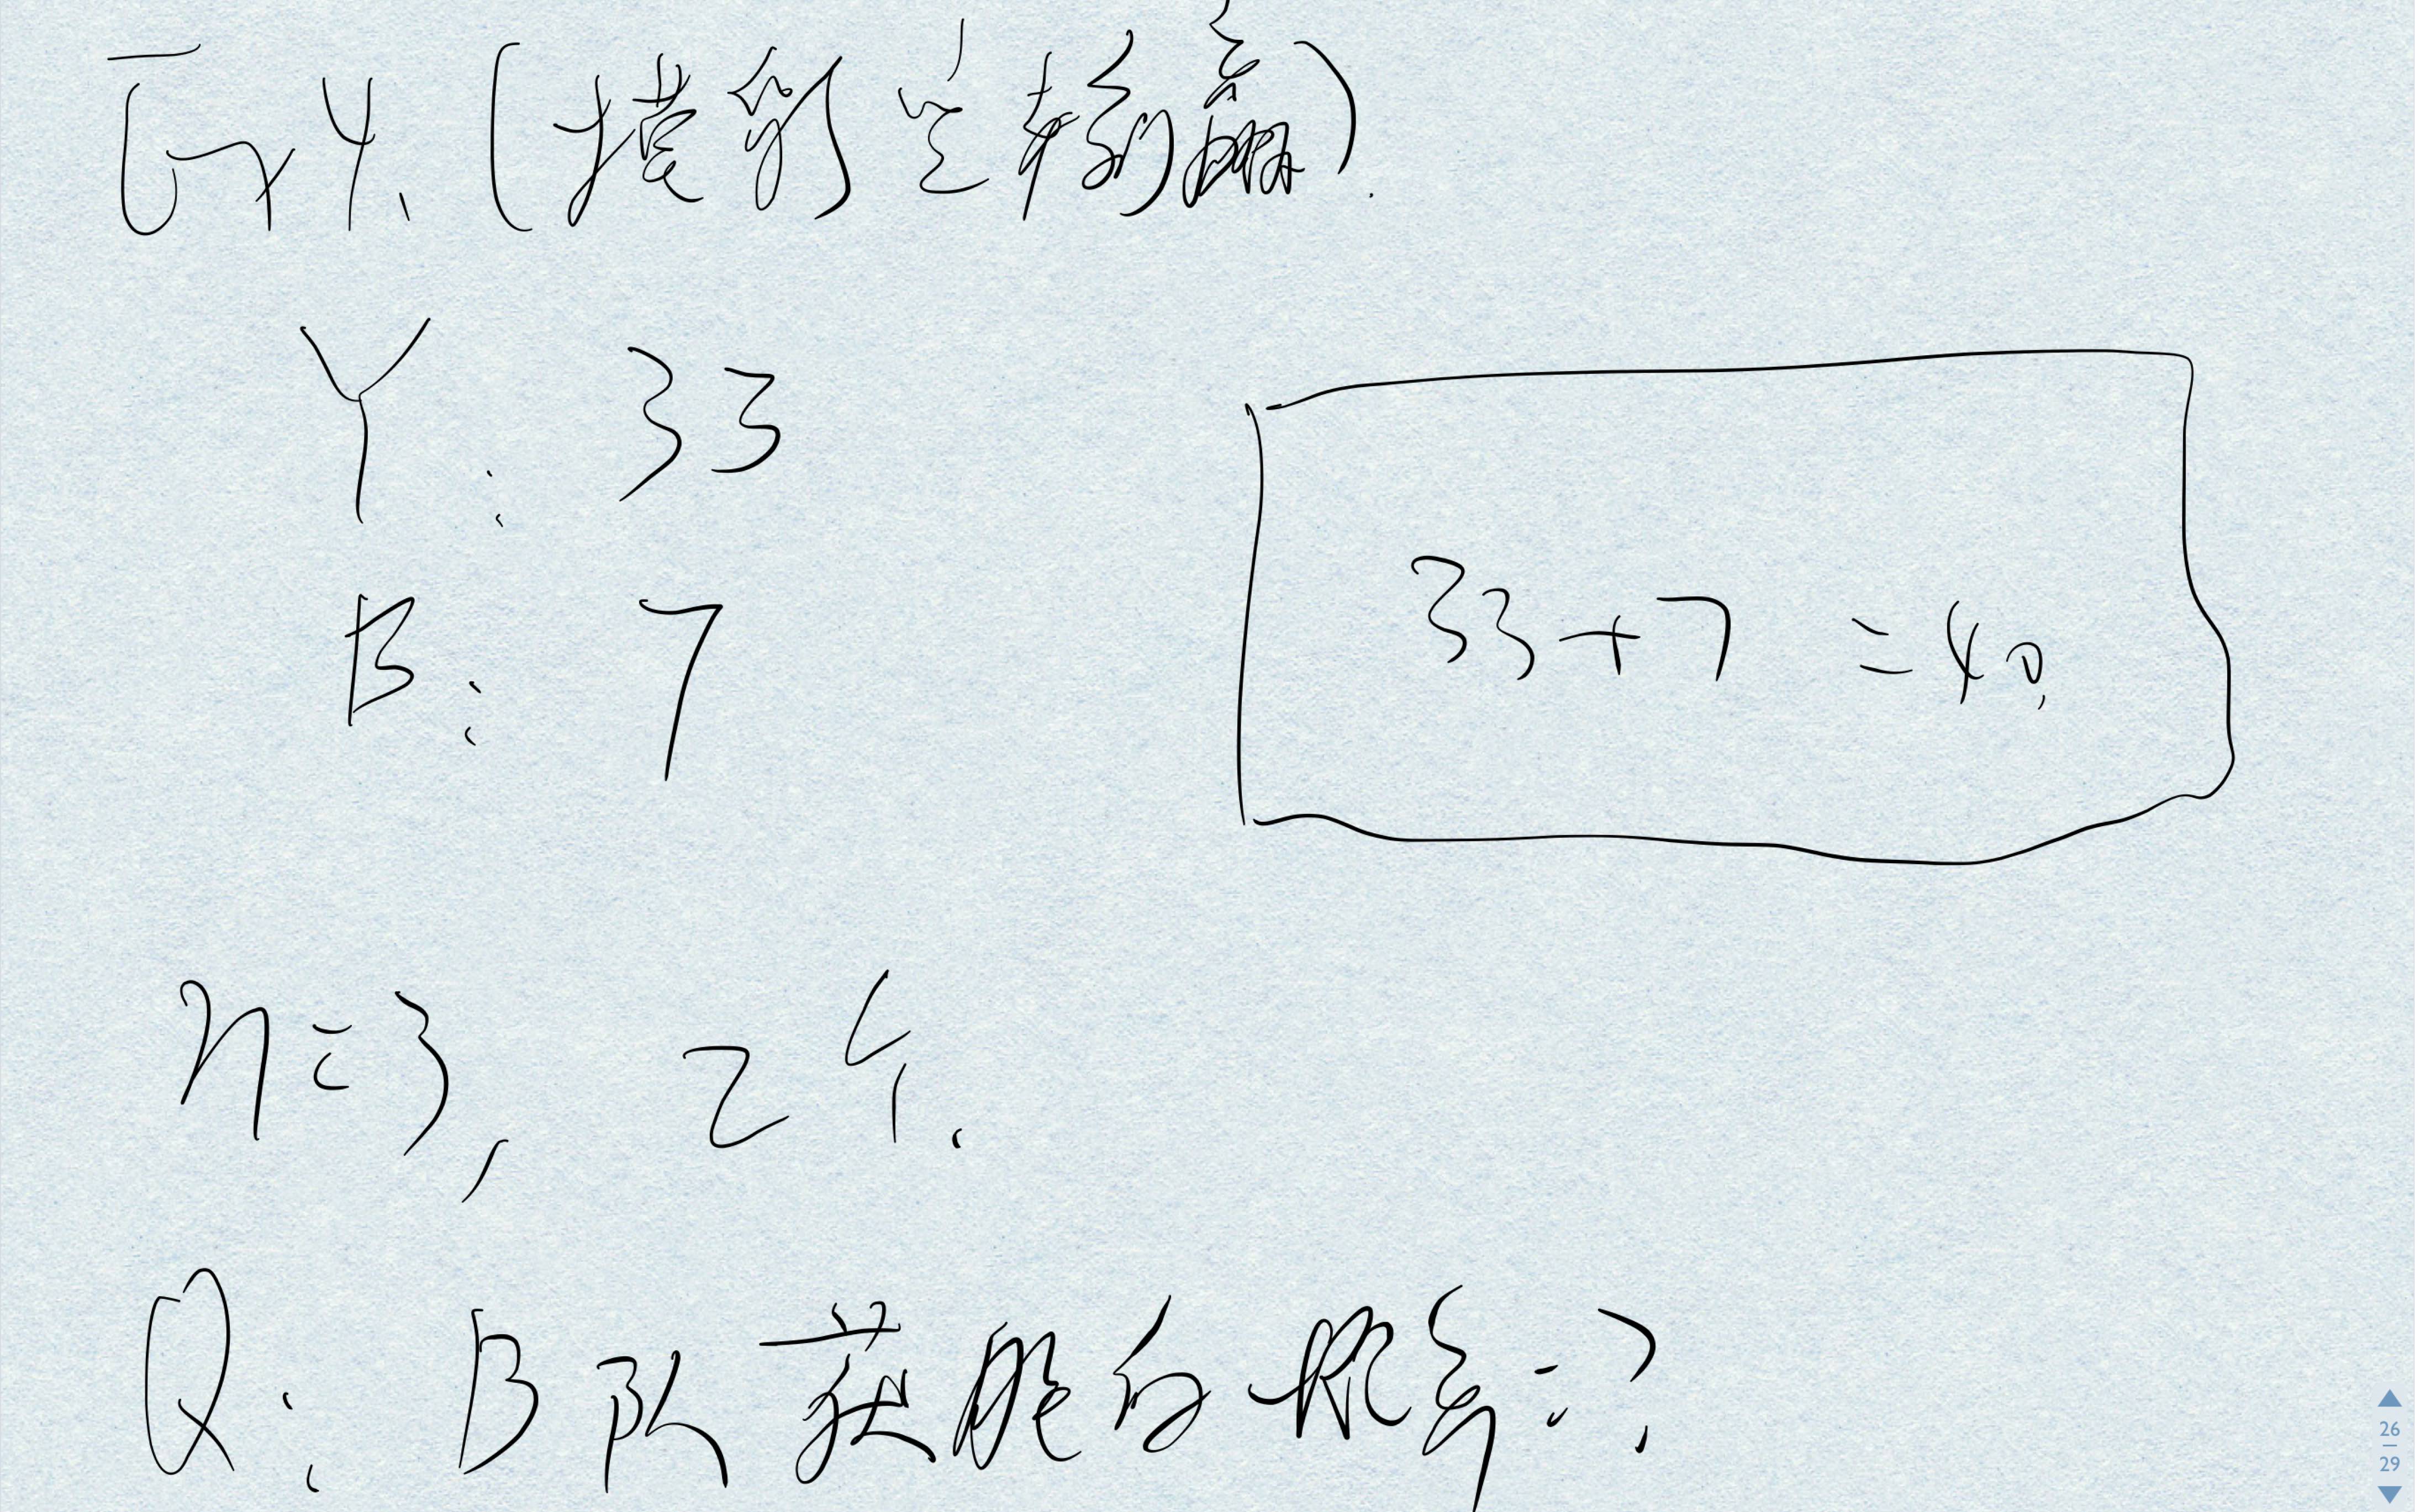 Ex 4. (摸彩定输赢).
Y: 33
B: 7
33+7 =40.
n=3, 2个.
Q: B 队获胜的概率=?
26
29